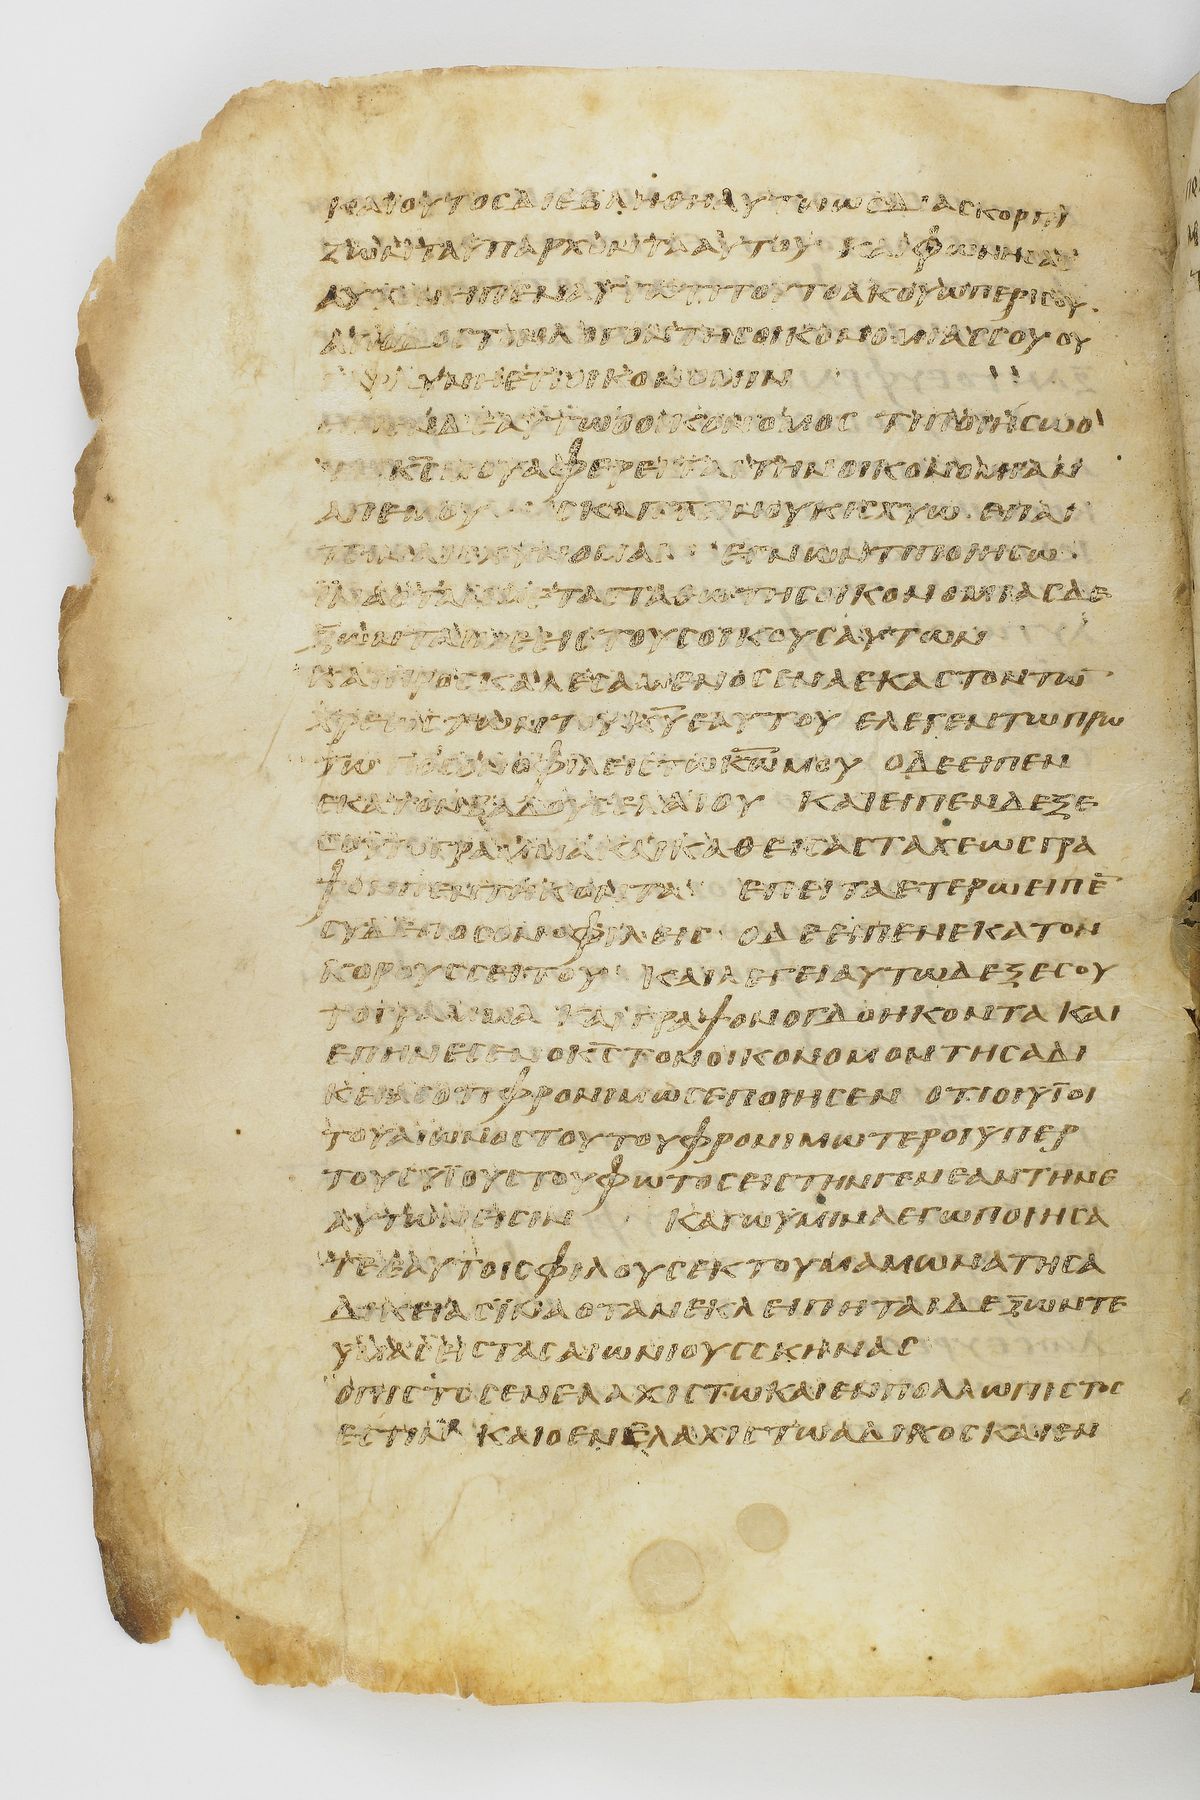 ΚΑΙΟΥΤΟCΔΙΕΒΛΗΘΗΑΥΤΩΩCΔΙΑCΚΟΡΠΙ
ΖΩΝΤΑΥΠΑΡΧΟΝΤΑΑΥΤΟΥ ΚΑΙΦΩΝΗCΑC
ΑΥΤΟΝΕΙΠΕΝΑΥΤΩΤΙΤΟΥΤΟΑΚΟΥΩΠΕΡΙCΟΥ
ΑΠΟΔΟCΤΟΝΛΟΓΟΝΤΗCΟΙΚΟΝΟΜΙΑCCΟΥ ΟΥ
ΓΑΡΔΥΝΗΕΤΙΟΙΚΟΝΟΜΙΝ
ΕΙΠΕΝΔΕΕΑΥΤΩΟΟΙΚΟΝΟΜΟC ΤΙΠΟΙΗCΩΟ
ΤΙΟΚ̅C̅ΜΟΥΑΦΕΡΕΙΤΑΙΤΗΝΟΙΚΟΝΟΜΙΑΝ
ΑΠΕΜΟΥ CΚΑΠΤΙΝΟΥΚΙCΧΥΩ ΕΠΑΙ
ΤΙΝΑΙCΧΥΝΟΜΑΙ ΕΓΝΩΝΤΙΠΟΙΗCΩ
ΙΝΑΟΤΑΝΜΕΤΑCΤΑΘΩΤΗCΟΙΚΟΝΟΜΙΑCΔΕ
ΞΩΝΤΑΙΜΕΕΙCΤΟΥCΟΙΚΟΥCΑΥΤΩΝ
ΚΑΙΠΡΟCΚΑΛΕCΑΜΕΝΟCΕΝΑΕΚΑCΤΟΝΤΩ̅
ΧΡΕΟΦΙΛΕΤΩΝΤΟΥΚ̅Υ̅ΕΑΥΤΟΥ ΕΛΕΓΕΝΤΩΠΡΩ
ΤΩ ΠΟCΟΝΟΦΙΛΕΙCΤΩΚ̅Ω̅ΜΟΥ ΟΔΕΕΙΠΕΝ
ΕΚΑΤΟΝΒΑΔΟΥCΕΛΑΙΟΥ ΚΑΙΕΙΠΕΝΔΕΞΕ
CΟΥΤΟΓΡΑΜΜΑΚΑΙΚΑΘΕΙCΑCΤΑΧΕΩCΓΡΑ
ΨΟΝΠΕΝΤΗΚΟΝΤΑ ΕΠΕΙΤΑΕΤΕΡΩΕΙΠΕ̅
CΥΔΕΠΟCΟΝΟΦΙΛΕΙC ΟΔΕΕΙΠΕΝΕΚΑΤΟΝ
ΚΟΡΟΥCCΕΙΤΟΥ ΚΑΙΛΕΓΕΙΑΥΤΩΔΕΞΕCΟΥ
ΤΟΓΡΑΜΜΑ ΚΑΙΓΡΑΨΟΝΟΓΔΟΗΚΟΝΤΑ ΚΑΙ
ΕΠΗΝΕCΕΝΟΚ̅C̅ΤΟΝΟΙΚΟΝΟΜΟΝΤΗCΑΔΙ
ΚΕΙΑCΟΤΙΦΡΟΝΙΜΩCΕΠΟΙΗCΕΝ ΟΤΙΟΙΥΙΟΙ
ΤΟΥΑΙΩΝΟCΤΟΥΤΟΥΦΡΟΝΙΜΩΤΕΡΟΙΥΠΕΡ
ΤΟΥCΥΙΟΥCΤΟΥΦΩΤΟCΕΙCΤΗΝΓΕΝΕΑΝΤΗΝΕ
ΑΥΤΩΝΕΙCΙΝ ΚΑΓΩΥΜΙΝΛΕΓΩΠΟΙΗCΑ
ΤΕΕΑΥΤΟΙCΦΙΛΟΥCΕΚΤΟΥΜΑΜΩΝΑΤΗCΑ
ΔΙΚΕΙΑCΙΝΑΟΤΑΝΕΚΛΕΙΠΗΤΑΙΔΕΞΩΝΤΕ
ΥΜΑCΕΙCΤΑCΑΙΩΝΙΟΥCCΚΗΝΑC
ΟΠΙCΤΟCΕΝΕΛΑΧΙCΤΩΚΑΙΕΝΠΟΛΛΩΠΙCΤΟC
ΕCΤΙΝ ΚΑΙΟΕΝΕΛΑΧΙCΤΩΑΔΙΚΟCΚΑΙΕΝ